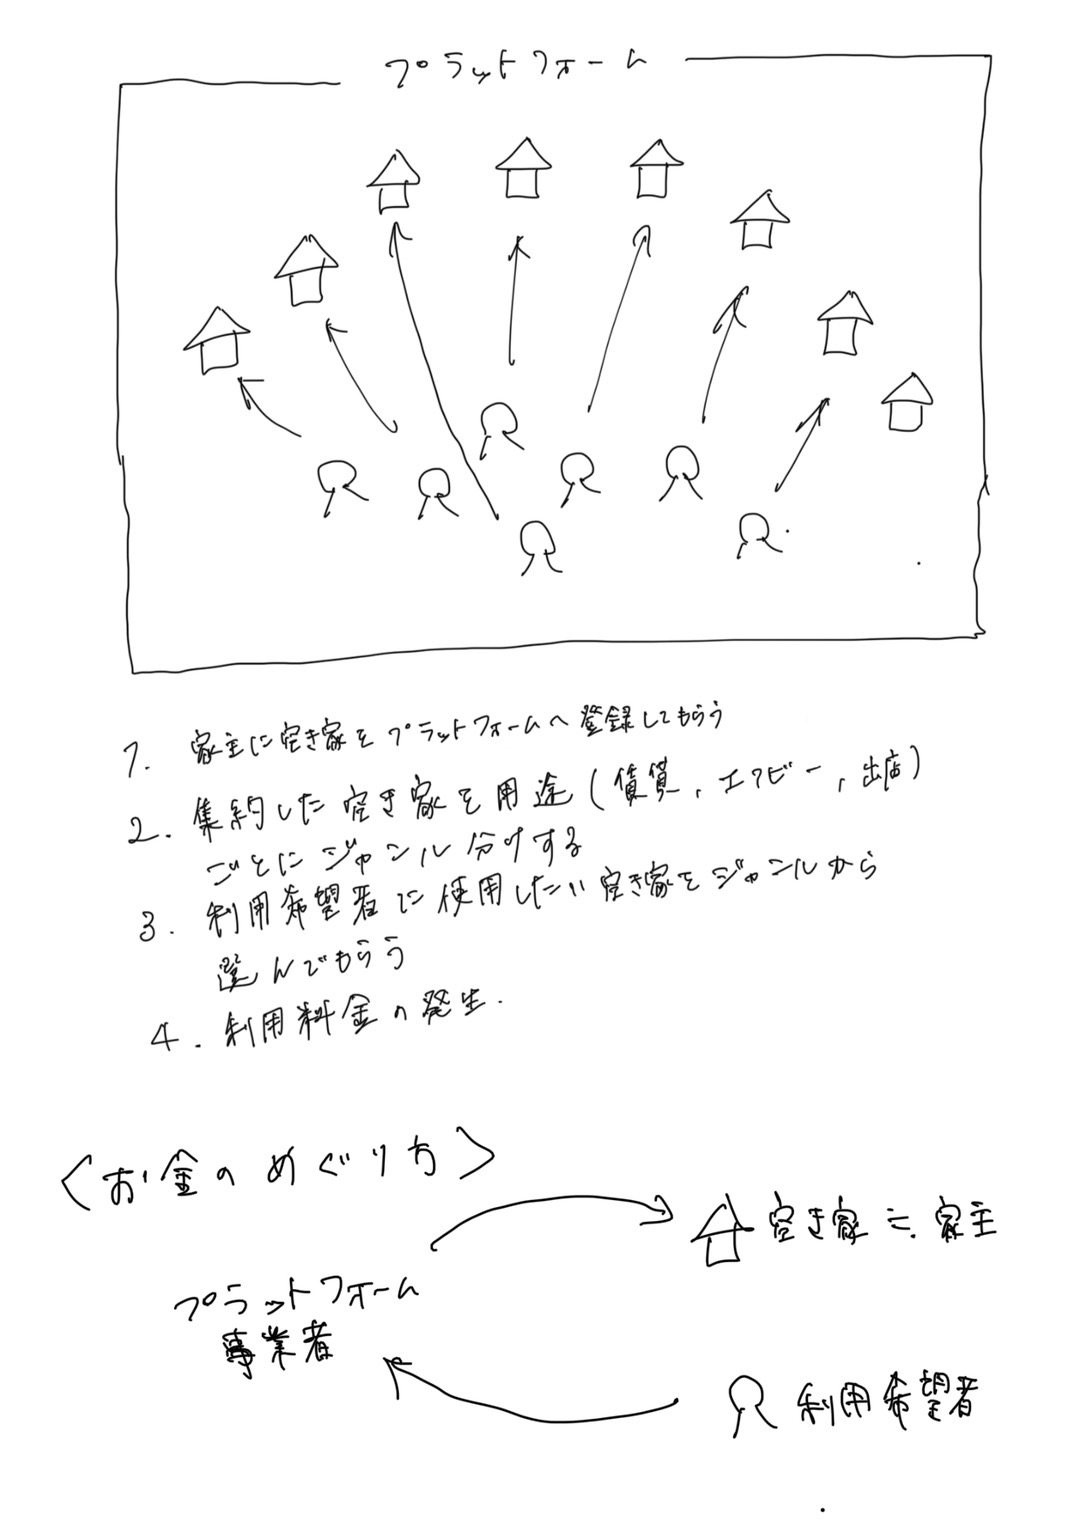 プラットフォーム
1. 家主に空き家をプラットフォームへ登録してもらう
2. 集約した空き家を用途(賃貸,エアビー,出店)
ごとにジャンル分けする
3. 利用希望者に使用したい空き家をジャンルから
選んでもらう
4. 利用料金の発生.
<お金のめぐり方>
空き家≒家主
プラットフォーム
事業者
利用希望者